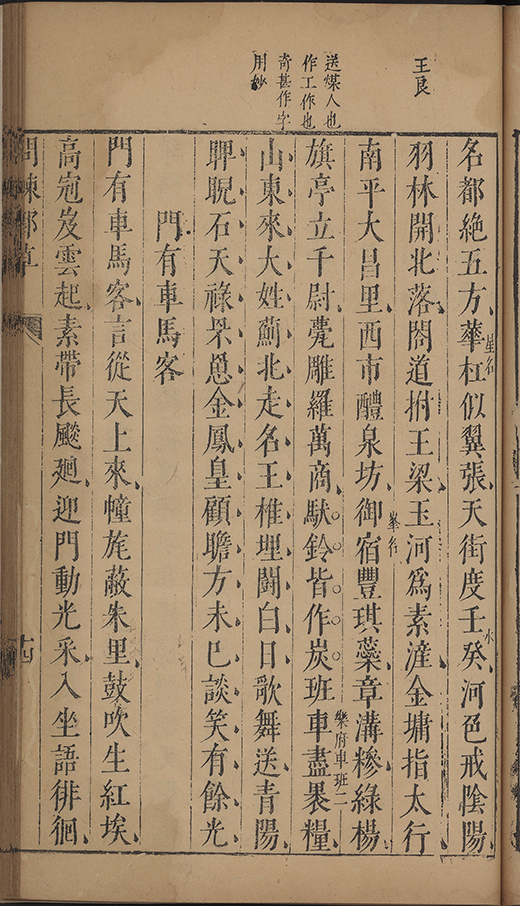 王良
送煤人也
作工作也
奇甚作字
用妙
名都絕五方華杠似翼張天街度壬癸河色戒陰陽
星名
水
羽林開北落閣道拊王梁玉河為素滻金墉指太行
星名
南平大昌里西市醴泉坊御宿豐琪蘂章溝糝綠楊
旗亭立千尉甍雕羅萬商馱鈴皆作炭班車盡褁糧
樂府車班二
山東來大姓薊北走名王椎埋鬭白日歌舞送青陽
睥睨石天祿罘罳金鳳皇顧瞻方未巳談笑有餘光
門有車馬客
門有車馬客言從天上來幢旄蔽朱里鼓吹生紅埃
高冠岌雲起素帶長飈廻迎門動光采入坐語徘徊
問棘郵草
十四